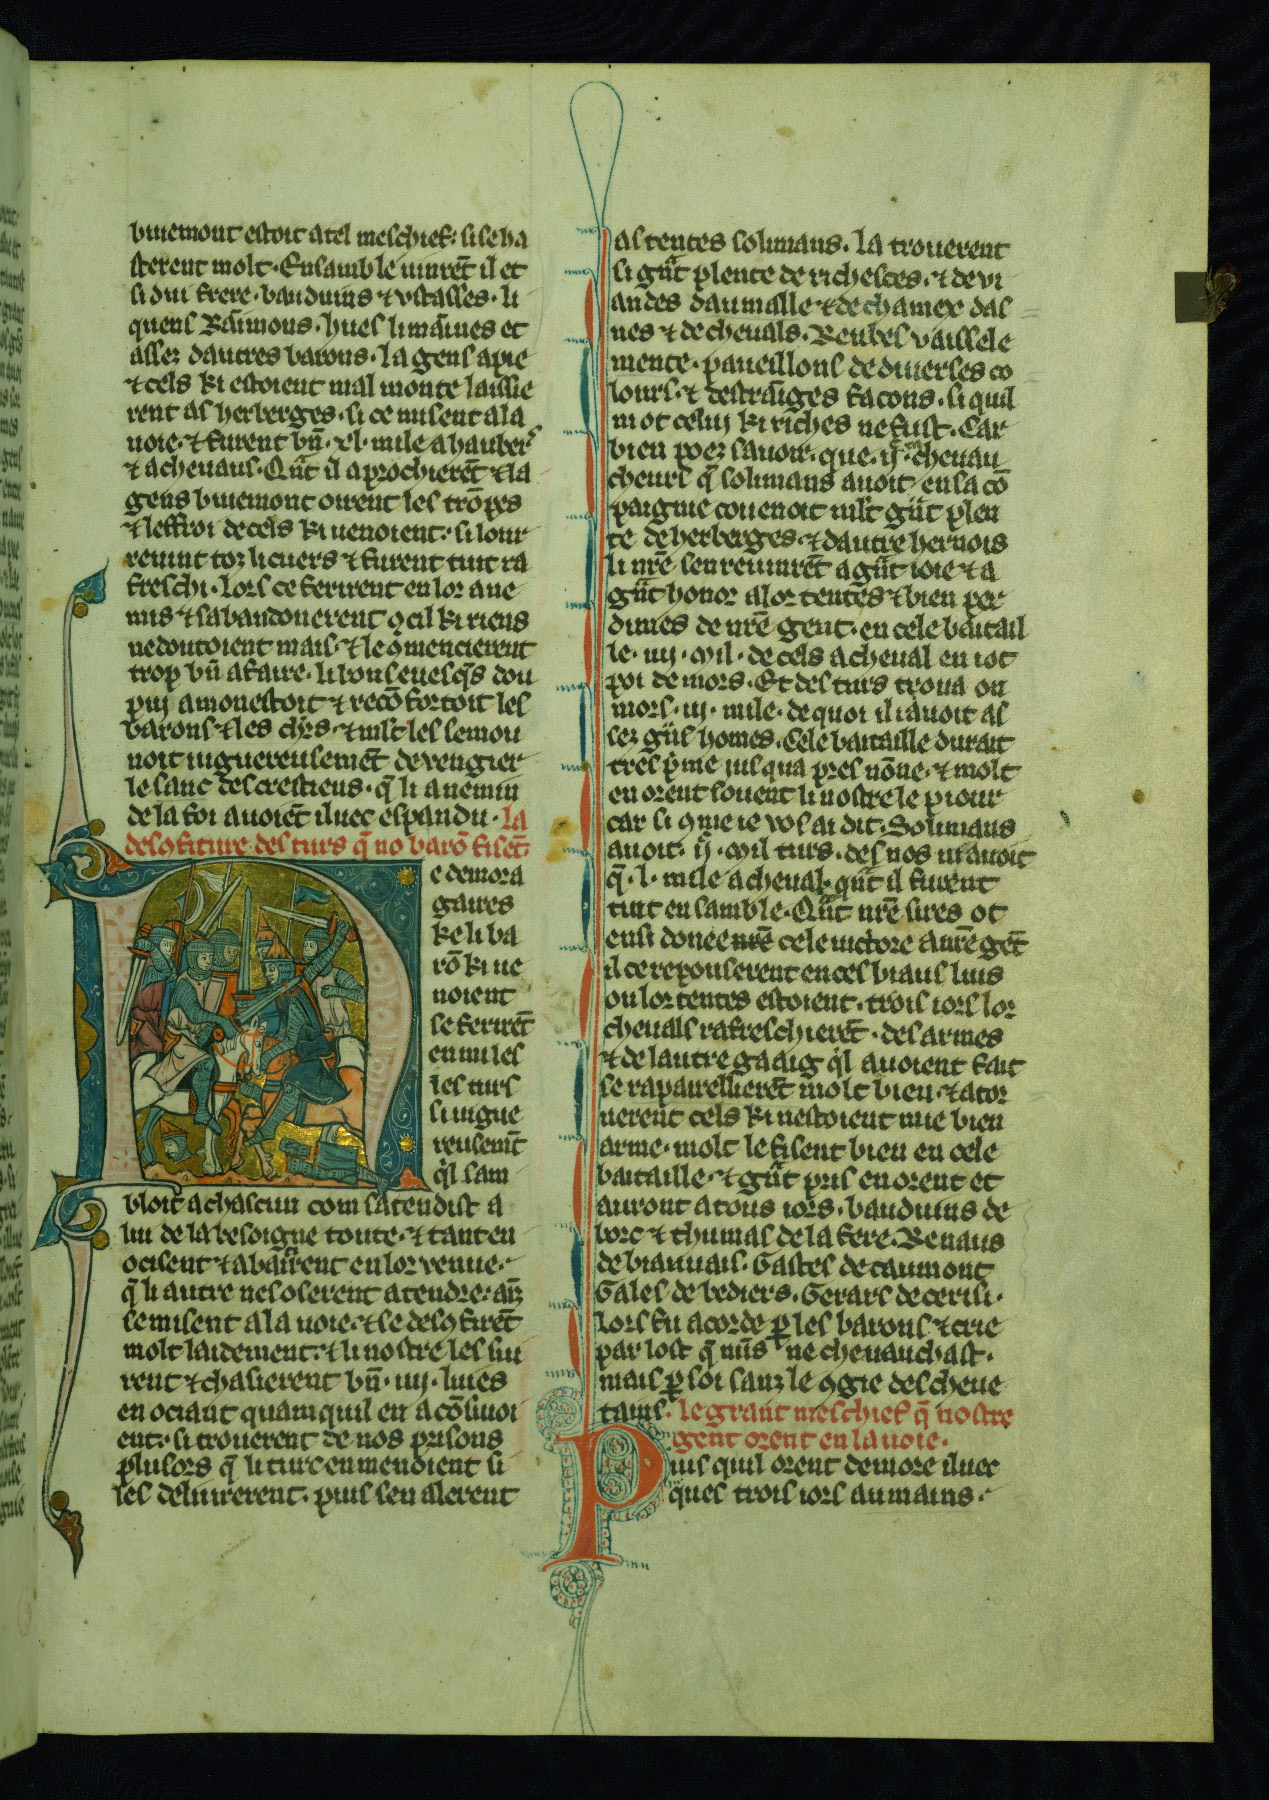 29
buiemont estoit a tel meschief. si se ha
sterent molt. Ensamble uinrēt il et
si dui frere. bauduins ⁊ vstasses. li
quens Raimons. hues li maines et
assez dautres barons. la gens a pie
⁊ cels ki estoient mal monte laissie
rent as herberges. si ce misent a la
uoie. ⁊ furent bn̄. xl. mile a haubers
⁊ a cheuaus. Qn̄t il aprochierēt ⁊ la
gens buiemont oirent les trōpes
⁊ leffroi de cels ki uenoient. si lour
reuint toz li cuers ⁊ furent tuit ra
freschi. lors ce ferirent en lor ane
mis ⁊ sabandonerent ꝯ cil ki riens
ne doutoient mais. ⁊ le ꝯmencierent
trop bn̄ a faire. li bons euesq̄s dou
pui amonestoit ⁊ recōfortoit les
barons ⁊ les chr̄s. ⁊ ml̄t les semou
noit uiguereusemēt de vengier
le sanc des crestiens. q̄ li anemi
de la foi auoiēt iluec espandu. la
desꝯfiture des turs q̄ no barō fisēt.
e demora
gaires
ke li ba
rō ki ue
noient
se ferirēt
en mi les
les turs
si uigue
reusemt̄
q̄l sam
bloit a chascun com satendist a
lui de la besoigne toute. ⁊ tant en
ocisent ⁊ abatirent en lor venue.
q̄ li autre nes oserent atendre. ainz
se misent a la uoie. ⁊ se desꝯfirēt
molt laidement. ⁊ li nostre les sui
rent ⁊ chasierent bn̄. iiij. liues
en ociant quanquil en acōsiuoi
ent. si trouerent de nos prisons
plusors q̄ li turc en menoient si
les deliurerent. puis sen alerent
as tentes solimans. la trouerent
si gn̄t plente de richesces. ⁊ de vi
andes daumaille ⁊ de chamex das
nes ⁊ de cheuals. Reubes vaissele
mente. paueillons de diuerses co
lours. ⁊ destrāiges facons. si quil
not celui ki riches ne fust. Car
bien poez sauoir. que. ijͨ. ᵐ cheuau
cheurs q̄ solimans auoit en sa cō
paignie couenoit ml̄t gn̄t plen
te de herberges. ⁊ dautre hernois
li nr̄e sen reuinrēt a gn̄t ioie ⁊ a
gn̄t honor a lor tentes ⁊ bien per
dimes de nr̄e gent. en cele baitail
le. iiij. mil. de cels a cheual en iot
poi de mors. Et des turs troua on
mors. iij. mile. de quoi il i auoit as
sez gn̄s homes. Cele bataille durait
tres p̄me iusqua pres nōne. ⁊ molt
en orent souent li nostre le piour
car si ꝯme ie vos ai dit. Solimans
auoit. ijͨ. mil turs. des nos ni auoit
q̄. l. mile a cheual. qn̄t il furent
tuit ensamble. Qn̄t nr̄e sires ot
ensi donee nr̄e cele uictore a nr̄e gēt
il ce reposerent en ces biaus luis
ou lor tentes estoient. trois iors lor
cheuals rafreschierēt. des armes
⁊ de lautre gaaig q̄l auoient fait
se rapareillierēt molt bien. ⁊ ator
nerent cels ki nestoient mie bien
arme. molt le fisent bien en cele
baitaille. ⁊ gn̄t pris en orent et
auront a tous iors. bauduins de
borc ⁊ thumas de la fere. Renaus
de biauuais. Gastes de caumont
Gales de bediers. Gerars de cerisi.
lors fu acorde ꝑ les barons ⁊ crie
par lost q̄ nus ne cheuauchast.
mais ꝑ soi sanz le ꝯgie des cheue
tains. le grant meschief q̄ nostre
gent orent en la uoie.
Puis quil orent demore iluec
ques trois iors au mains.